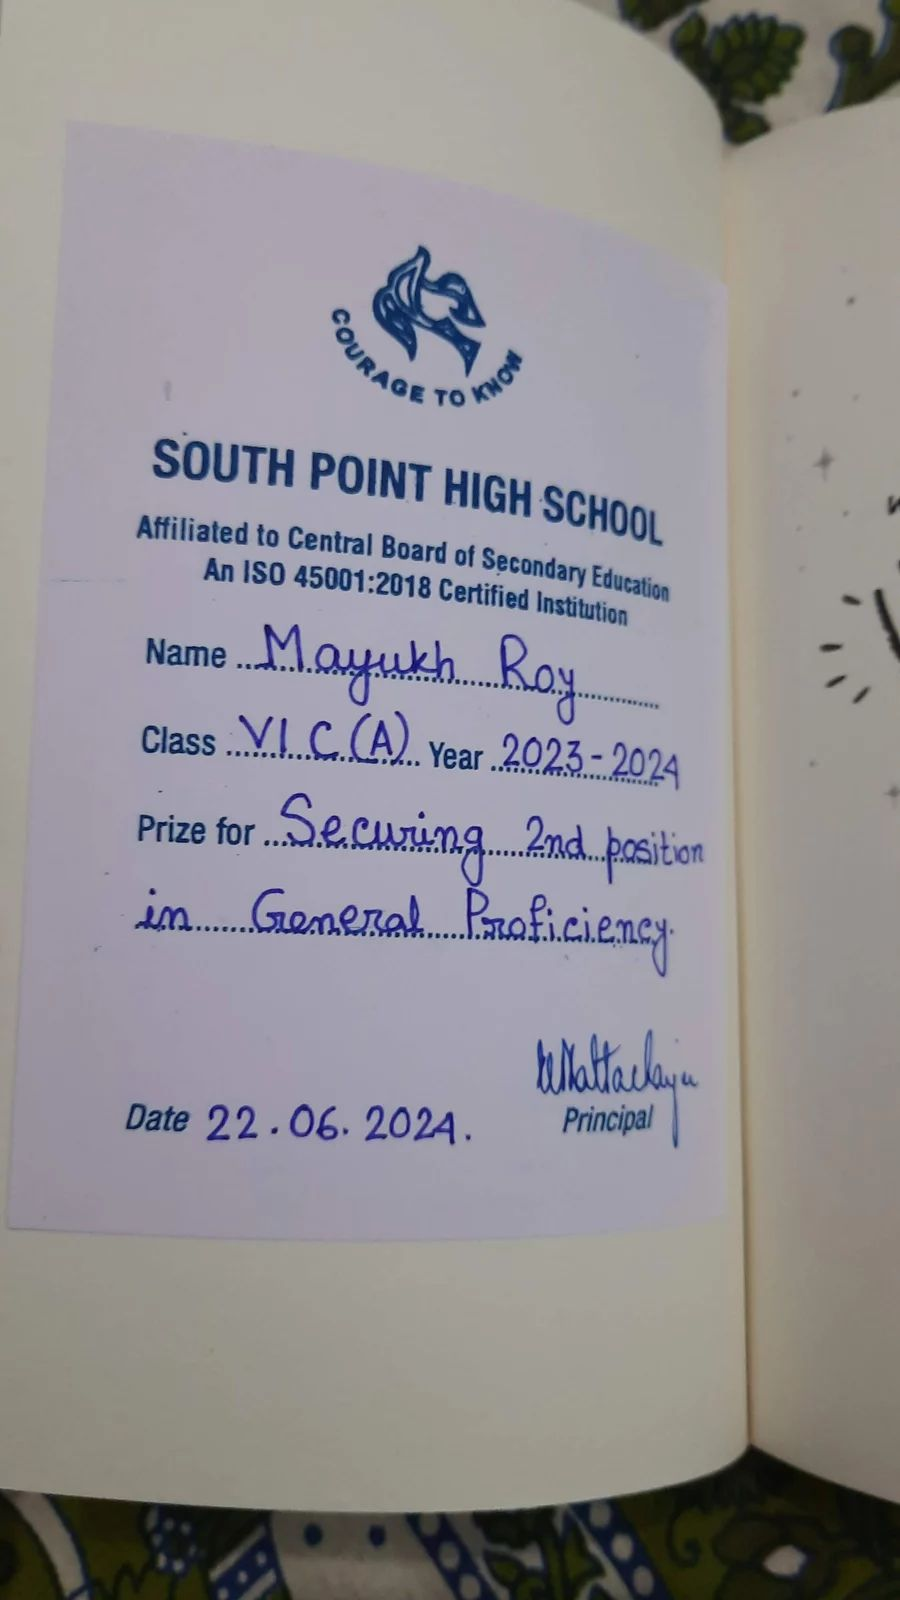 COURAGE TO KNOW
SOUTH POINT HIGH SCHOOL
Affiliated to Central Board of Secondary Education
An ISO 45001:2018 Certified Institution
Name Mayukh Roy
Class VI C (A) Year 2023-2024
Prize for Securing 2nd position
in General Proficiency.
Date 22.06.2024.
Principal